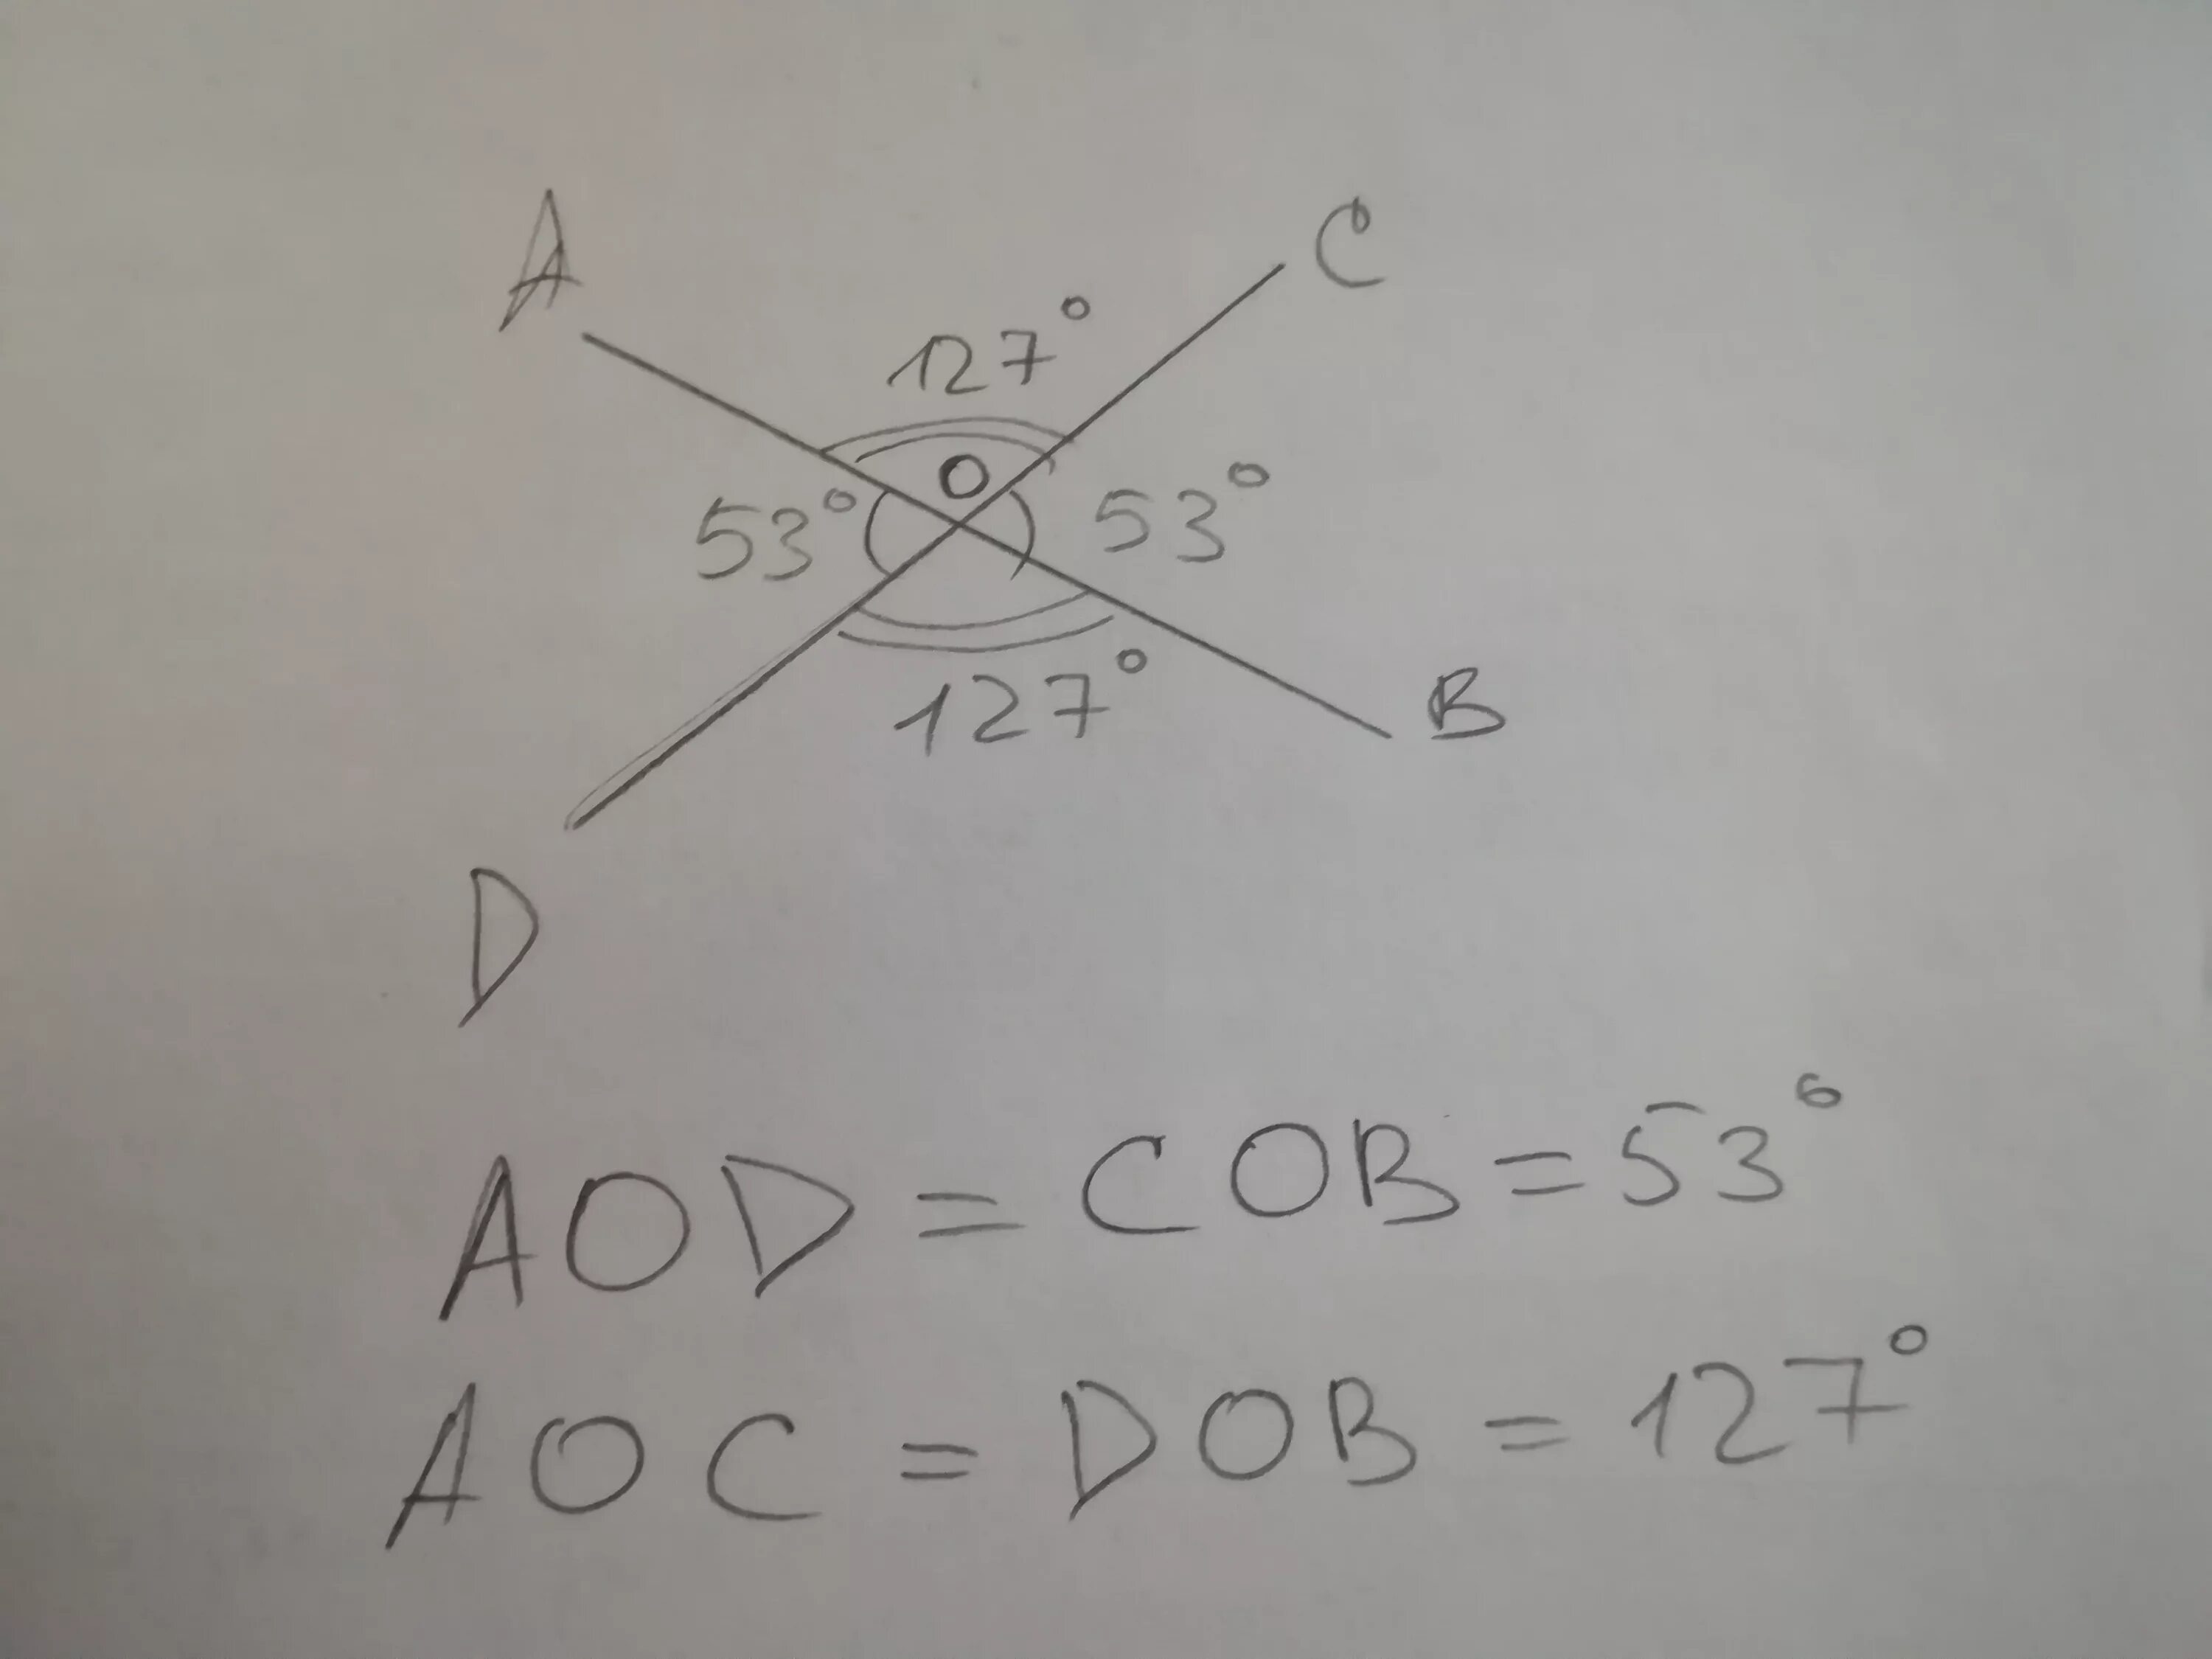 A
C
127°
O
53°
53°
127°
B
D
AOD = COB = 53°
AOC = DOB = 127°